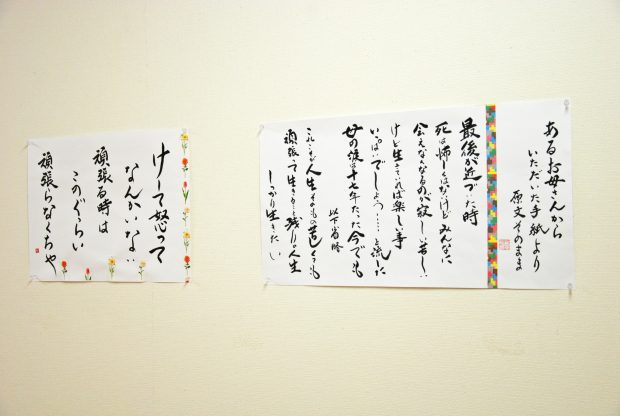 あるお母さんから
いただいた手紙より
原文そのまま
最後が近づいた時
死は怖しくはないけどみんなに
会えなくなるのが寂しい苦しい…
けど生きていれば楽しい事
いっぱい…でしょう…と流した
母の涙は十七年たった今でも
以下省略
これからも人生そのもの
頑張って生きます残りの人生
しっかり生きたい
けして怒って
なんかいない…
頑張る時は
このぐらい
頑張らなくちゃ